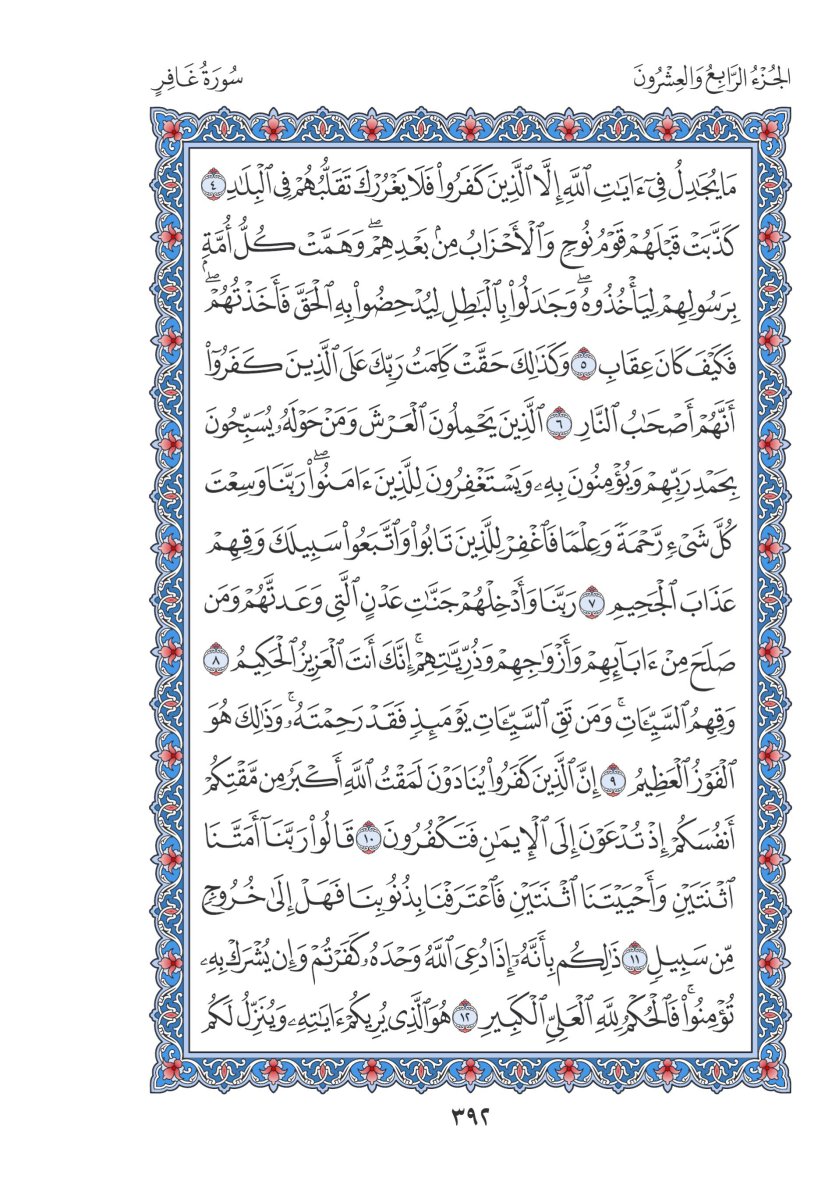 الجُزْءُ الرَّابِعُ وَالعِشْرُونَ
سُورَةُ غَافِرٍ
مَا يُجَٰدِلُ فِىٓ ءَايَٰتِ ٱللَّهِ إِلَّا ٱلَّذِينَ كَفَرُوا۟ فَلَا يَغْرُرْكَ تَقَلُّبُهُمْ فِى ٱلْبِلَٰدِ ٤
كَذَّبَتْ قَبْلَهُمْ قَوْمُ نُوحٍ وَٱلْأَحْزَابُ مِنۢ بَعْدِهِمْ ۖ وَهَمَّتْ كُلُّ أُمَّةٍۭ
بِرَسُولِهِمْ لِيَأْخُذُوهُ ۖ وَجَٰدَلُوا۟ بِٱلْبَٰطِلِ لِيُدْحِضُوا۟ بِهِ ٱلْحَقَّ فَأَخَذْتُهُمْ ۖ
فَكَيْفَ كَانَ عِقَابِ ٥ وَكَذَٰلِكَ حَقَّتْ كَلِمَتُ رَبِّكَ عَلَى ٱلَّذِينَ كَفَرُوٓا۟
أَنَّهُمْ أَصْحَٰبُ ٱلنَّارِ ٦ ٱلَّذِينَ يَحْمِلُونَ ٱلْعَرْشَ وَمَنْ حَوْلَهُۥ يُسَبِّحُونَ
بِحَمْدِ رَبِّهِمْ وَيُؤْمِنُونَ بِهِۦ وَيَسْتَغْفِرُونَ لِلَّذِينَ ءَامَنُوا۟ ۖ رَبَّنَا وَسِعْتَ
كُلَّ شَىْءٍ رَّحْمَةً وَعِلْمًا فَٱغْفِرْ لِلَّذِينَ تَابُوا۟ وَٱتَّبَعُوا۟ سَبِيلَكَ وَقِهِمْ
عَذَابَ ٱلْجَحِيمِ ٧ رَبَّنَا وَأَدْخِلْهُمْ جَنَّٰتِ عَدْنٍ ٱلَّتِى وَعَدتَّهُمْ وَمَن
صَلَحَ مِنْ ءَابَآئِهِمْ وَأَزْوَٰجِهِمْ وَذُرِّيَّٰتِهِمْ ۚ إِنَّكَ أَنتَ ٱلْعَزِيزُ ٱلْحَكِيمُ ٨
وَقِهِمُ ٱلسَّيِّـَٔاتِ ۚ وَمَن تَقِ ٱلسَّيِّـَٔاتِ يَوْمَئِذٍ فَقَدْ رَحِمْتَهُۥ ۚ وَذَٰلِكَ هُوَ
ٱلْفَوْزُ ٱلْعَظِيمُ ٩ إِنَّ ٱلَّذِينَ كَفَرُوا۟ يُنَادَوْنَ لَمَقْتُ ٱللَّهِ أَكْبَرُ مِن مَّقْتِكُمْ
أَنفُسَكُمْ إِذْ تُدْعَوْنَ إِلَى ٱلْإِيمَٰنِ فَتَكْفُرُونَ ١٠ قَالُوا۟ رَبَّنَآ أَمَتَّنَا
ٱثْنَتَيْنِ وَأَحْيَيْتَنَا ٱثْنَتَيْنِ فَٱعْتَرَفْنَا بِذُنُوبِنَا فَهَلْ إِلَىٰ خُرُوجٍ
مِّن سَبِيلٍ ١١ ذَٰلِكُم بِأَنَّهُۥٓ إِذَا دُعِىَ ٱللَّهُ وَحْدَهُۥ كَفَرْتُمْ وَإِن يُشْرَكْ بِهِۦ
تُؤْمِنُوا۟ ۚ فَٱلْحُكْمُ لِلَّهِ ٱلْعَلِىِّ ٱلْكَبِيرِ ١٢ هُوَ ٱلَّذِى يُرِيكُمْ ءَايَٰتِهِۦ وَيُنَزِّلُ لَكُم
٣٩٢